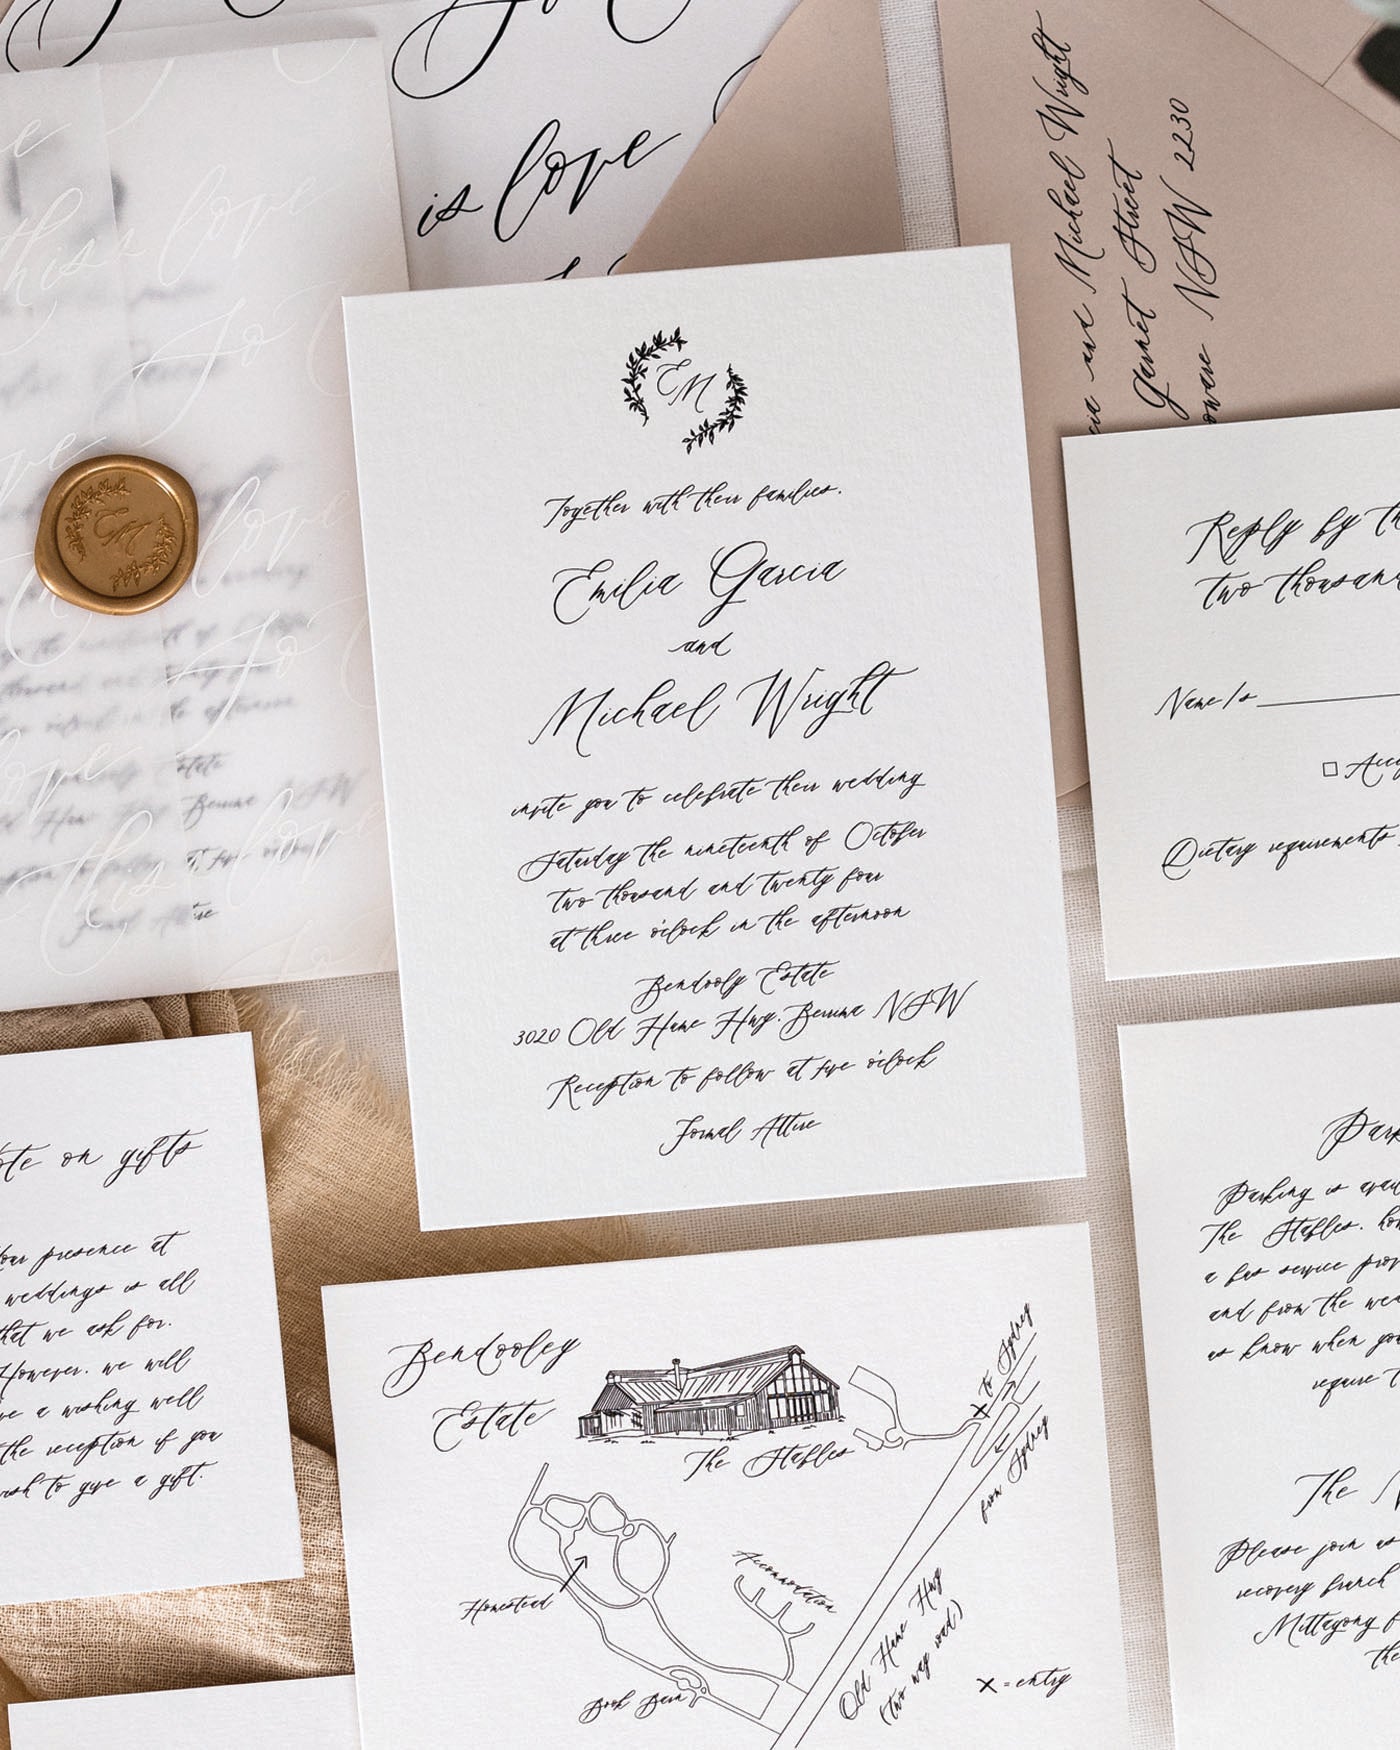 is love
this is love
and Michael Wright
Garnet Street
NSW 2230
EM
Together with their families,
Emilia Garcia
and
Michael Wright
invite you to celebrate their wedding
Saturday the nineteenth of October
two thousand and twenty four
at three o'clock in the afternoon
Bendooly Estate
3020 Old Hume Hwy, Berrima NSW
Reception to follow at five o'clock
Formal Attire
EM
Reply by
two
Name/s
Dietary requirements
on gifts
presence at
weddings is all
that we ask for.
However, we will
a wishing well
the reception if you
to give a gift.
Bendooley
Estate
The Stables
to Sydney
from Sydney
Homestead
Accommodation
Book Barn
Old Hume Hwy
(two way road)
X = entry
Parking is
The Stables,
a bus service
and from the
us know when you
require
The
Please join us
recovery brunch
Mittagong